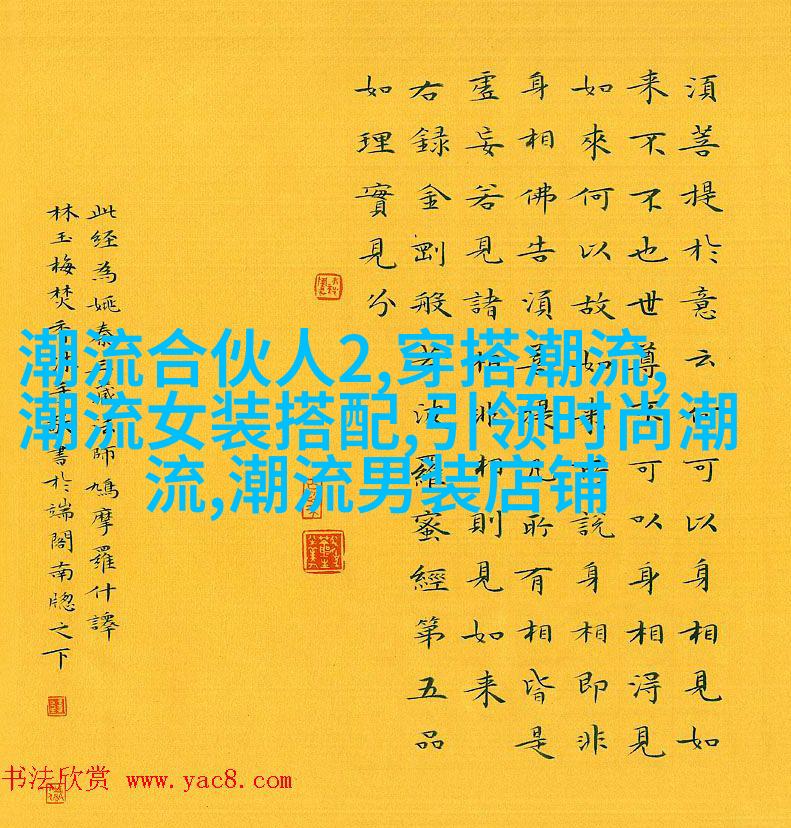 須菩提於意云何可以身相見如
来不不也世尊不可以身相得見
如來何以故如來所說身相即非
身相佛告須菩提凡所有相皆是
虛妄若見諸相非相則見如来
右録金剛般若波羅蜜經第五品
如理實見分
此経為姚秦三藏法師鳩摩羅什譯
林玉梅焚香沐手敬書於端閣南牕之下
潮流合伙人2,穿搭潮流,
潮流女装搭配,引领时尚潮
流,潮流男装店铺
书法欣赏 www.yac8.com